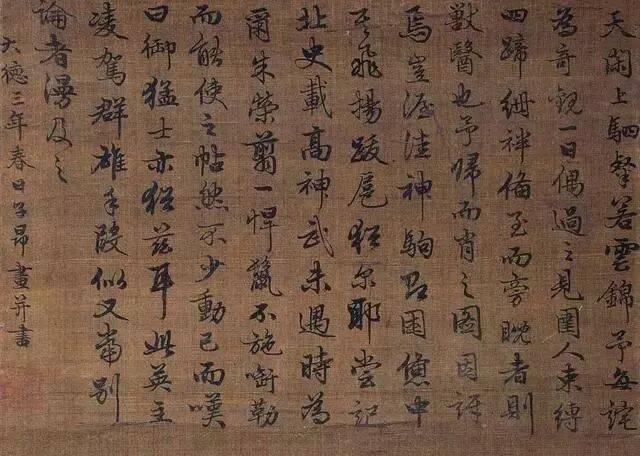 天閑上駟若雲錦予每詫
為奇觀一日偶過之見圉人束縛
四蹄絏絆備至而旁睨者則
獸醫也予歸而肖之圖因訝
焉豈渥洼神駒困憊中
其飛揚跋扈猶尔耶嘗記
北史載高神武未遇時為
爾朱榮翦一悍驘不施銜勒
而能使之帖然不少動已而嘆
曰御猛士亦猶茲耳此英主
凌駕群雄手段似又當別
論者漫及之
大德三年春日子昂畫并書